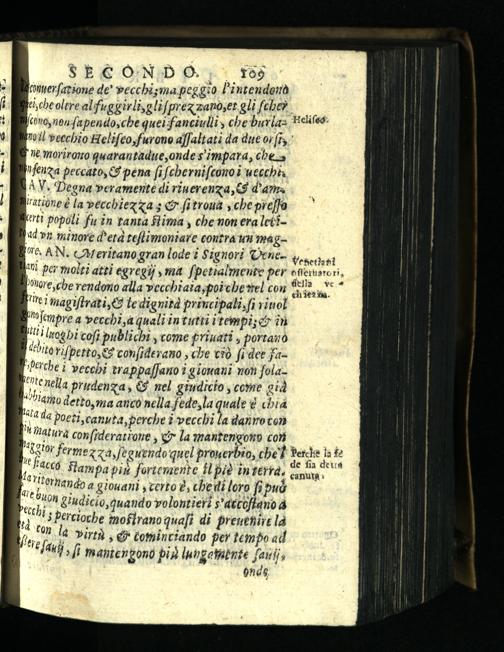 SECONDO. 109
la conuersatione de' vecchi; ma peggio l'intendono
quei, che oltre al fuggirli, gli sprezzano, et gli scher
niscono, non sapendo, che quei fanciulli, che burla-
uano il vecchio Heliseo, furono assaltati da due orsi,
& ne morirono quarantadue, onde s'impara, che
non senza peccato, & pena si scherniscono i uecchi.
CAV. Degna veramente di riuerenza, & d'am-
miratione è la vecchiezza; & si troua, che presso
a certi popoli fu in tanta stima, che non era leci-
to ad vn minore d'età testimoniare contra un mag-
giore. AN. Meritano gran lode i Signori Vene-
tiani per molti atti egregij, ma spetialmente per
l'honore, che rendono alla vecchiaia, poi che nel con
ferire i magistrati, & le dignità principali, si riuol
gono sempre a vecchi, a quali in tutti i tempi; & in
tutti i luoghi cosi publichi, come priuati, portano
il debito rispetto, & considerano, che ciò si dee fa-
re, perche i vecchi trappassano i giouani non sola-
mente nella prudenza, & nel giudicio, come già
habbiamo detto, ma anco nella fede, la quale è chia
mata da poeti, canuta, perche i vecchi la danno con
più matura consideratione, & la mantengono con
maggior fermezza, seguendo quel prouerbio, che'l
bue stacco stampa più fortemente il piè in terra.
Ma ritornando a giouani, certo è, che di loro si può
fare buon giudicio, quando volontieri s'accostano a
vecchi; percioche mostrano quasi di preuenire la
età con la virtù, & cominciando per tempo ad
essere sauij, si mantengono più lungamente sauij,
onde
Heliseo.
Venetiani
osseruatori,
della ve-
chiezza.
Perche la fe
de sia detta
canuta.